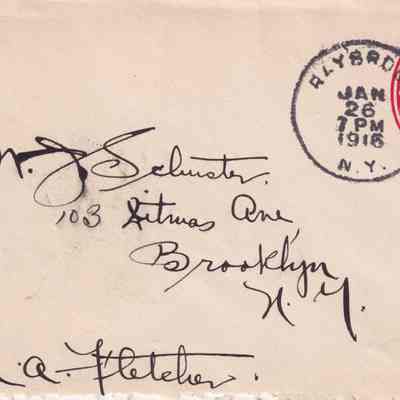 RLYBRO
JAN
26
7 PM
1916
N.Y.
J. Schuster.
103 Ditmas Ave,
Brooklyn
N. Y.
a. Fletcher.